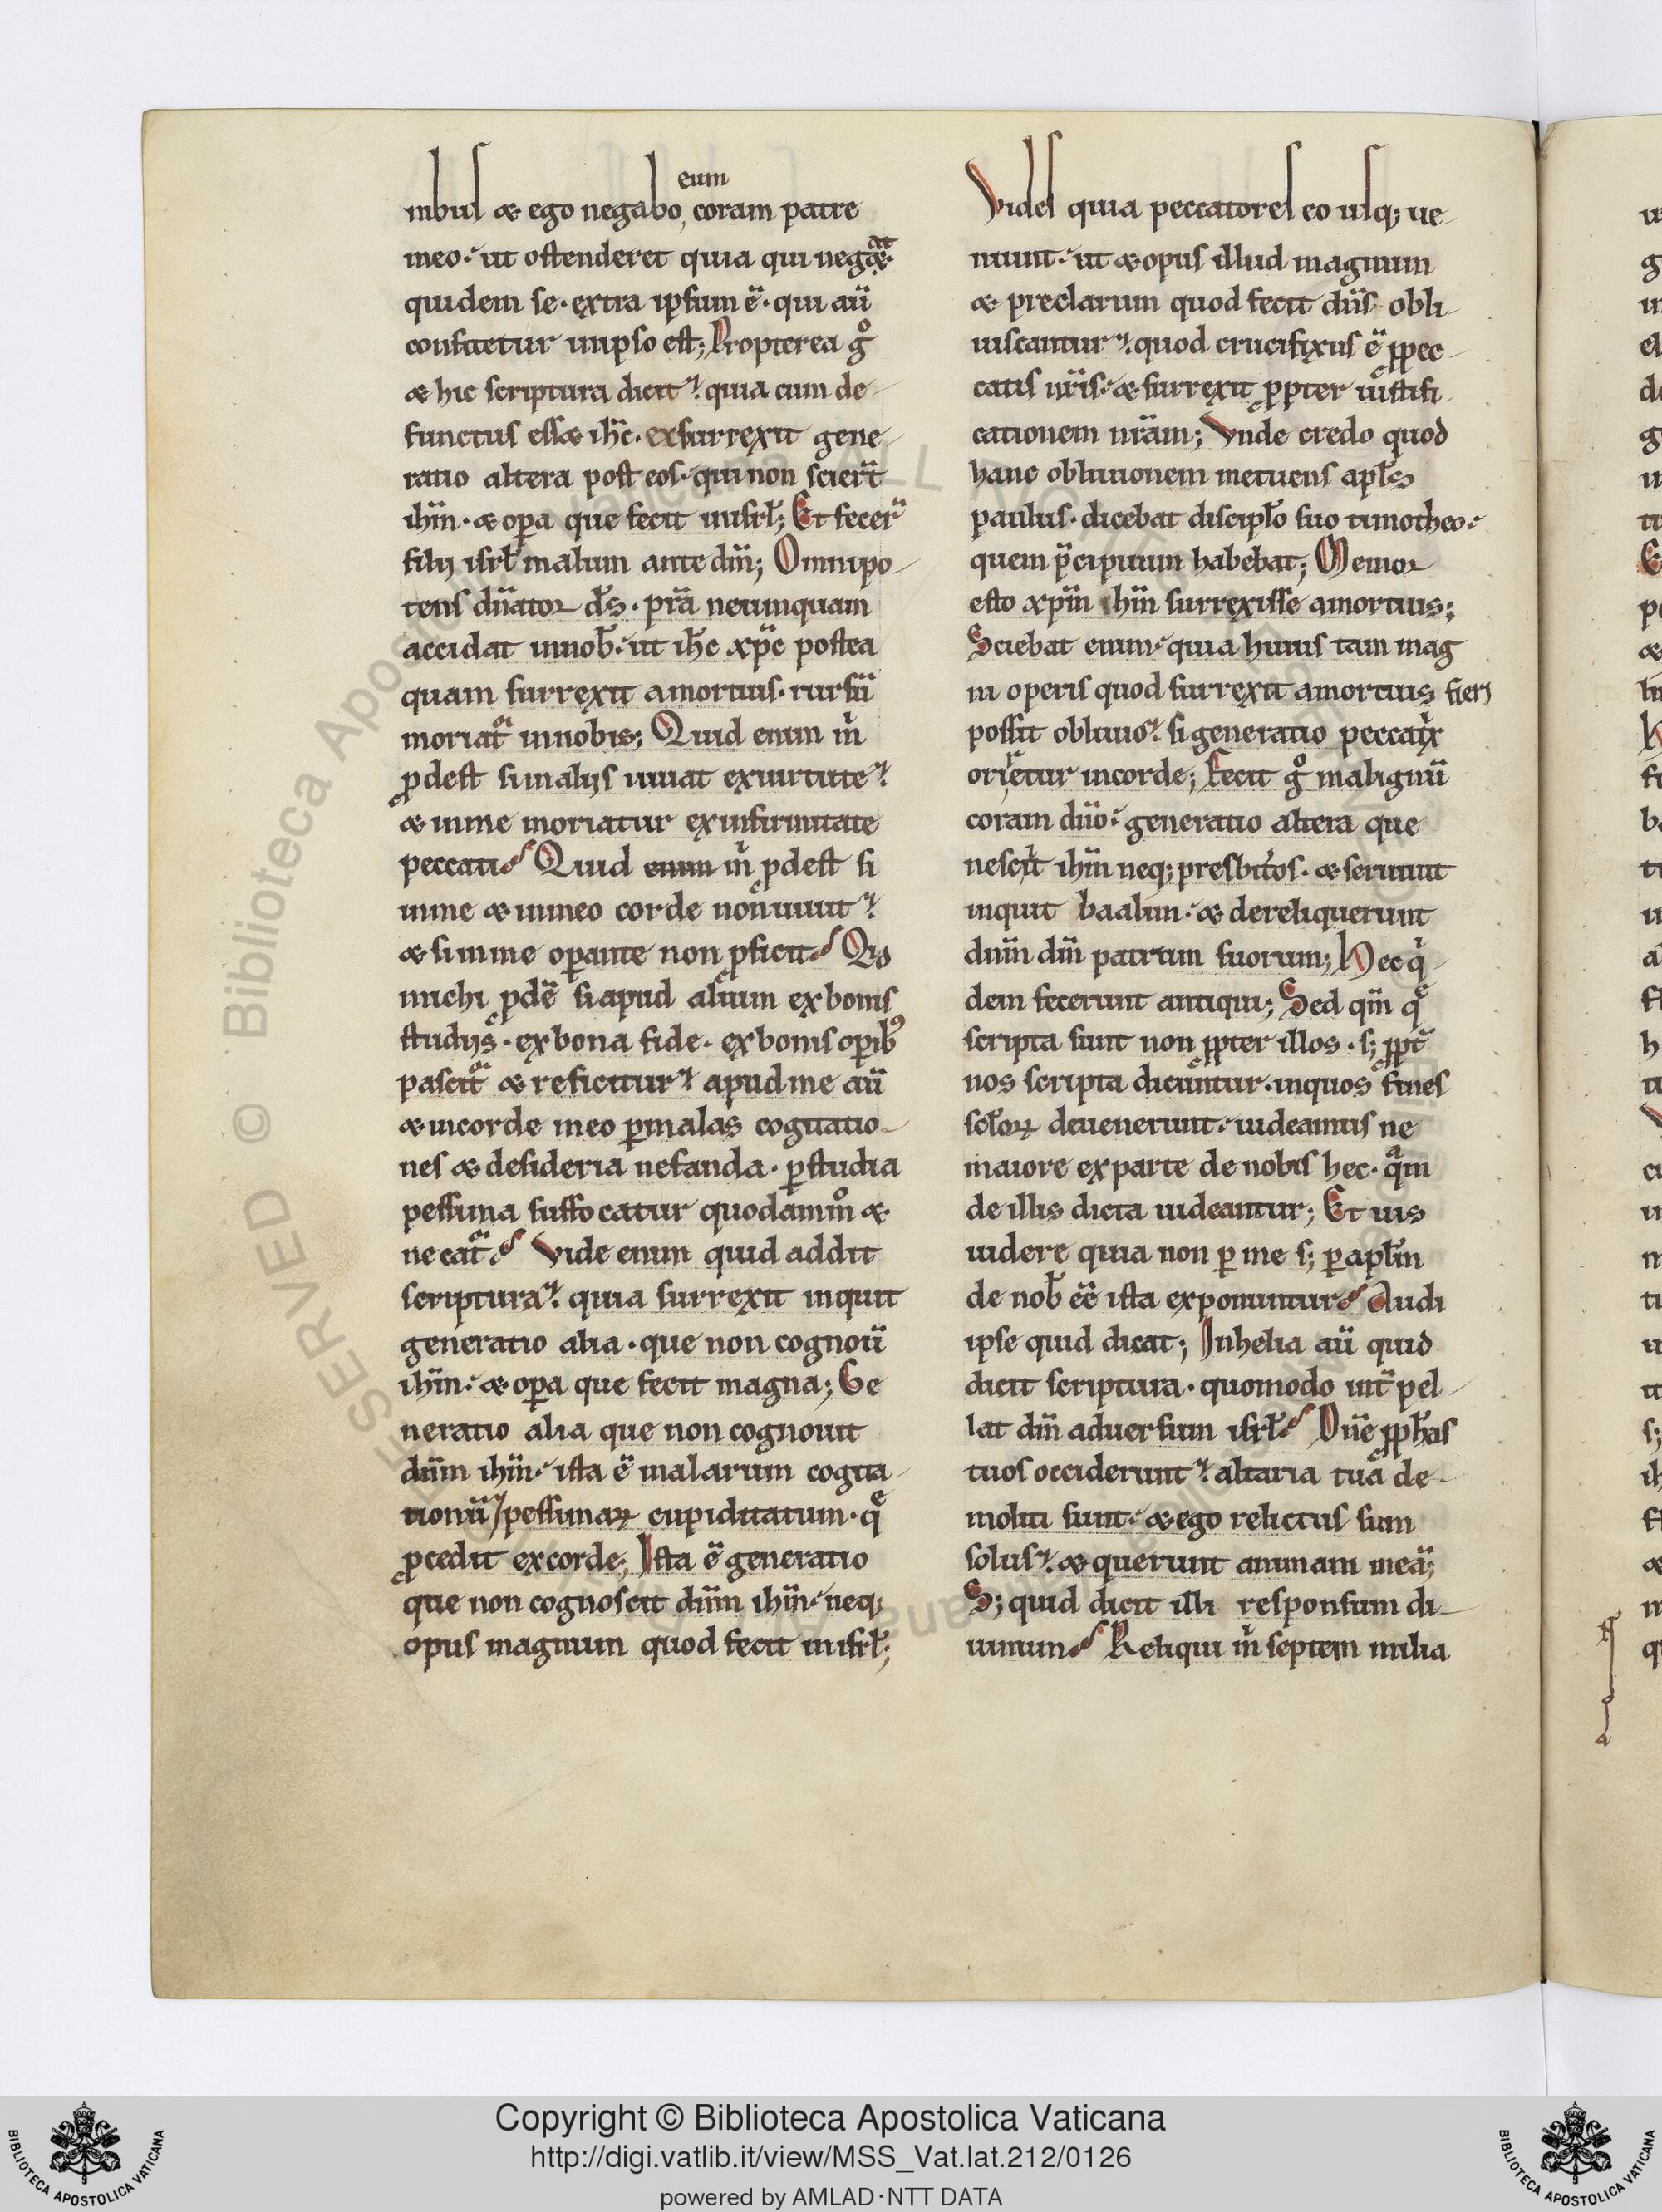 nibus & ego negabo, coram patre
eum
meo. ut ostenderet quia qui neg&.
at
quidem se. extra ipsum ē. qui aū
confitetur in ipso est; Propterea gͦ
& hic scriptura dicit. quia cum de-
functus ess& ihc̄. exsurrexit gene-
ratio altera post eos. qui non scier̄t
ihm̄. & oꝑa que fecit in isrl̄; Et fecer̄
filij isrl̄ malum ante dm̄; Omnipo-
tens dn̄ator ds̄. prā ne umquam
accidat in nob̄. ut ihc̄ xpc̄ postea
quam surrexit a mortuis. rursū
moriat᷑ in nobis; Quid enim m̍
ꝓdest si in alijs uiuat ex uirtute.
& in me moriatur ex infirmitate
peccati. Quid enim m̍ ꝓdest si
in me & in meo corde non uiuit.
& si in me oꝑante non ꝓficit. Qͥd
michi ꝓdē si apud alium ex bonis
studijs. ex bona fide. ex bonis oꝑibꝰ
pascit᷑ & reficitur. apud me aū
& in corde meo ꝑ malas cogitatio-
nes & desideria nefanda. ꝑ studia
pessima suffocatur quodammͦ &
necat᷑. Vide enim quid addit
scriptura. quia surrexit inquit
generatio alia. que non cognoū
ihm̄. & oꝑa que fecit magna; Ge
neratio alia que non cognouit
dnm̄ ihm̄. ista ē malarum cogita-
tionū / pessimaꝝ cupiditatum. q̄
ꝓcedit ex corde; Ista ē generatio
que non cognoscit dnm̄ ihm̄. neq;
opus magnum quod fecit in isrl̄;
Vides quia peccatores eo usq; ue-
niunt. ut & opus illud magnum
& preclarum quod fecit dn̄s obli-
uiscantur. quod crucifixus ē ꝓ pec-
catis nr̄is. & surrexit ꝓpter iustifi-
cationem nr̄am; Vnde credo quod
hanc obliuionem metuens apl̄s
paulus. dicebat discipl̄o suo timotheo.
quem p̄cipuum habebat; Memor
esto xpm̄ ihm̄ surrexisse a mortuis;
Sciebat enim. quia huius tam mag
ni operis quod surrexit a mortuis fieri
possit obliuio. si generatio peccat̍x
orietur in corde; Fecit gͦ malignū
coram dn̄o. generatio altera que
nescit ihm̄ neq; presbit̄os. & seruiut
inquit baalim. & dereliquerunt
dnm̄ dm̄ patrum suorum; Hec q̍-
dem fecerunt antiqui; Sed qm̄ q̄
scripta sunt non ꝓpter illos. s; ꝓpt̄
nos scripta dicuntur. in quos fines
scl̄oꝝ deuenerunt. uideamus ne
maiore ex parte de nobis hec. qͣm
de illis dicta uideantur; Et uis
uidere quia non ꝑ me s; ꝑ apl̄m
de nob̄ eē ista exponuntur. Audi
ipse quid dicat; In helia aū quid
dicit scriptura. quomodo int̄pel-
lat dm̄ aduersum isrl̄. Dn̄e ꝓphetas
tuos occiderunt. altaria tua de-
moliti sunt. & ego relictus sum
solus. & querunt animam meā;
S; quid dicit illi responsum di-
uinum. Reliqui m̍ septem milia
Copyright © Biblioteca Apostolica Vaticana
http://digi.vatlib.it/view/MSS_Vat.lat.212/0126
powered by AMLAD·NTT DATA
BIBLIOTECA APOSTOLICA VATICANA
BIBLIOTECA APOSTOLICA VATICANA